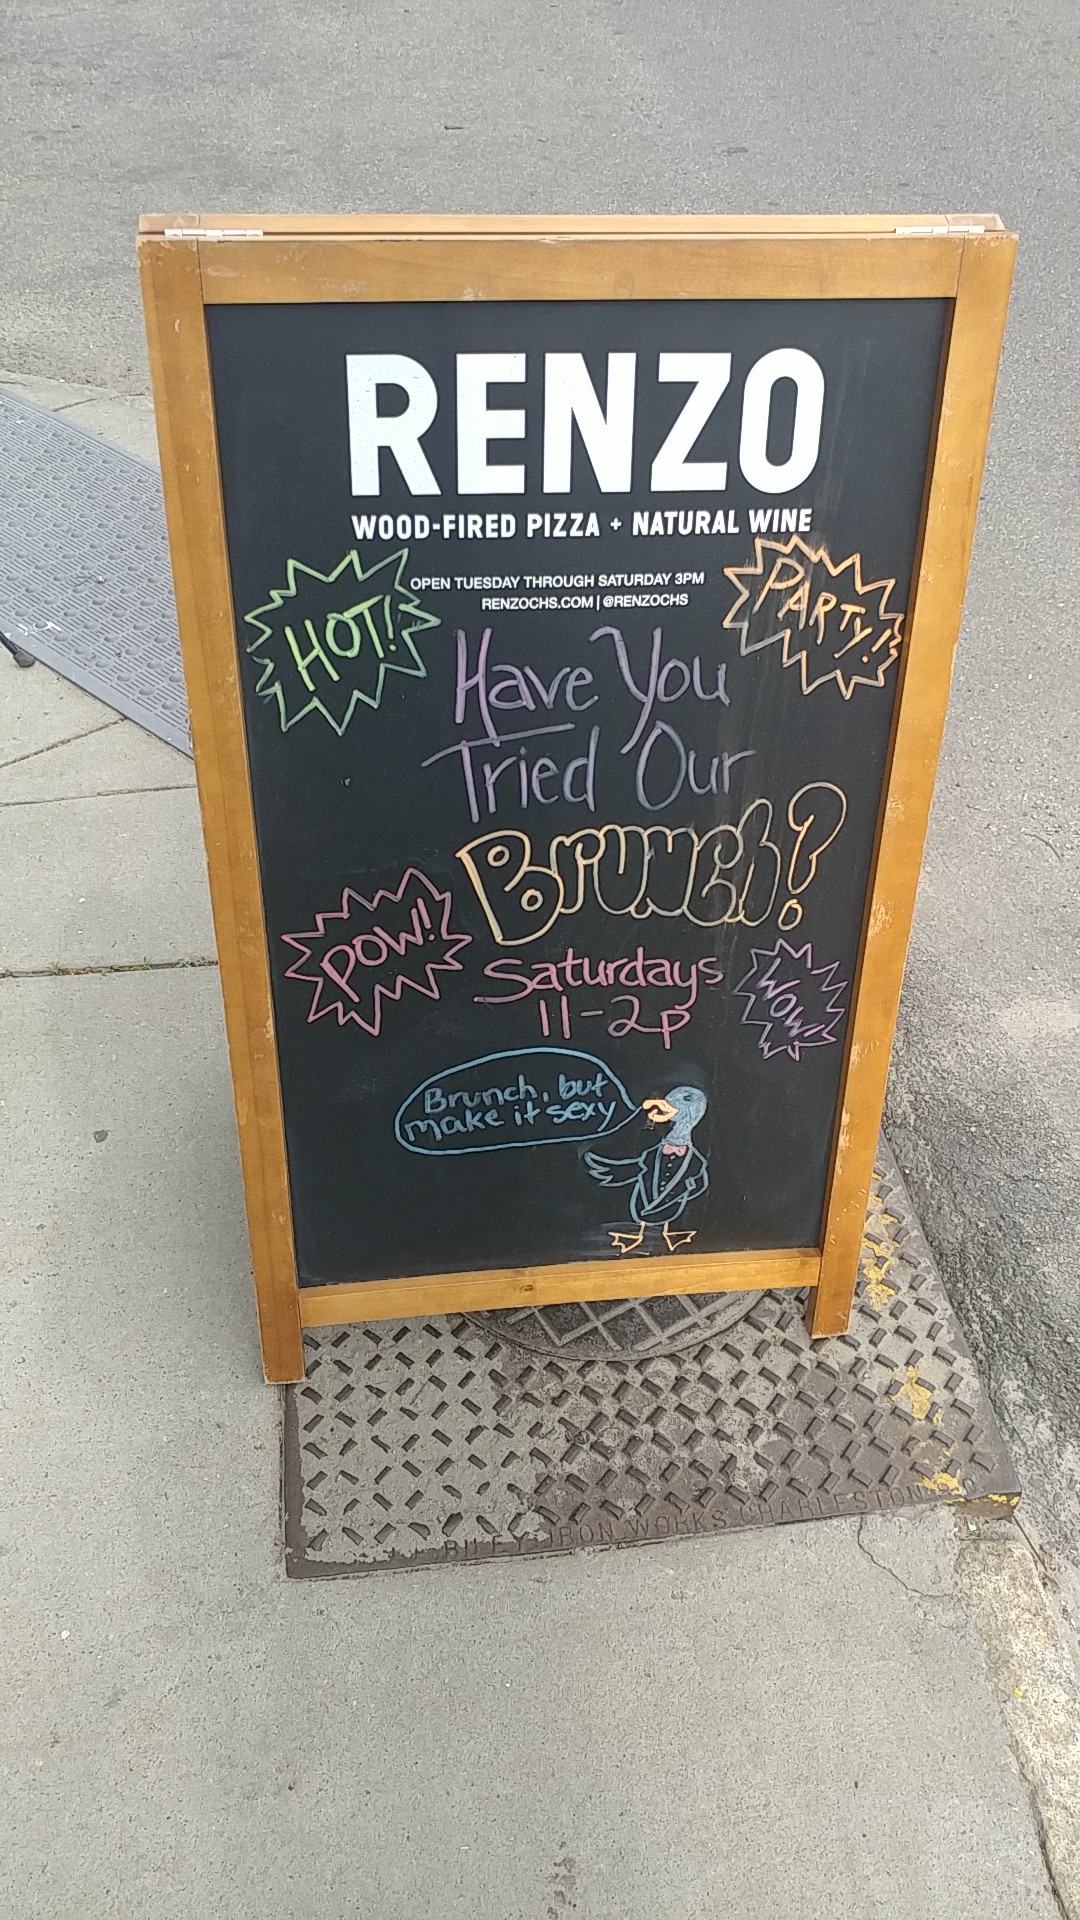 RENZO
WOOD-FIRED PIZZA + NATURAL WINE
OPEN TUESDAY THROUGH SATURDAY 3PM
RENZOCHS.COM | @RENZOCHS
HOT!
PARTY!
Have You
Tried Our
Brunch?
POW!
Saturdays
11-2p
WOW!
Brunch, but
make it sexy
RILEY IRON WORKS CHARLESTON